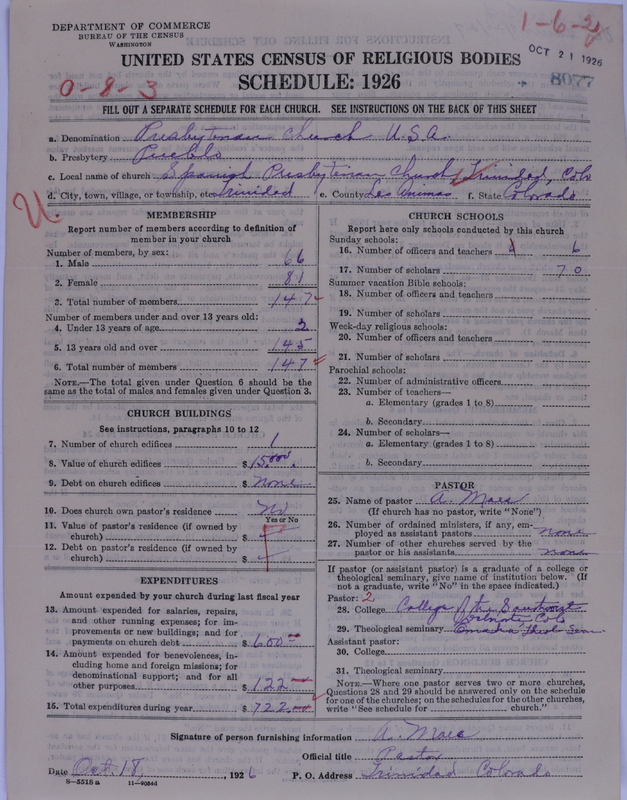 DEPARTMENT OF COMMERCE
BUREAU OF THE CENSUS
WASHINGTON
1-6-2
OCT 21 1926
UNITED STATES CENSUS OF RELIGIOUS BODIES
SCHEDULE: 1926
8077
0-8-3
FILL OUT A SEPARATE SCHEDULE FOR EACH CHURCH. SEE INSTRUCTIONS ON THE BACK OF THIS SHEET
a. Denomination Presbyterian Church U.S.A.
b. Presbytery Pueblo
c. Local name of church Spanish Presbyterian Church, Trinidad, Colo
d. City, town, village, or township, etc. Trinidad e. County Las Animas f. State Colorado
U.
MEMBERSHIP
Report number of members according to definition of
member in your church
Number of members, by sex:
1. Male 66
2. Female 81
3. Total number of members 147
Number of members under and over 13 years old:
4. Under 13 years of age 2
5. 13 years old and over 145
6. Total number of members 147
NOTE.—The total given under Question 6 should be the
same as the total of males and females given under Question 3.
CHURCH BUILDINGS
See instructions, paragraphs 10 to 12
7. Number of church edifices 1
8. Value of church edifices $15,000.
9. Debt on church edifices $ None
10. Does church own pastor's residence No
Yes or No
11. Value of pastor's residence (if owned by
church) $
12. Debt on pastor's residence (if owned by
church) $
EXPENDITURES
Amount expended by your church during last fiscal year
13. Amount expended for salaries, repairs,
and other running expenses; for im-
provements or new buildings; and for
payments on church debt $ 600
14. Amount expended for benevolences, in-
cluding home and foreign missions; for
denominational support; and for all
other purposes $ 122
15. Total expenditures during year $ 722
CHURCH SCHOOLS
Report here only schools conducted by this church
Sunday schools:
16. Number of officers and teachers 6
17. Number of scholars 70
Summer vacation Bible schools:
18. Number of officers and teachers
19. Number of scholars
Week-day religious schools:
20. Number of officers and teachers
21. Number of scholars
Parochial schools:
22. Number of administrative officers
23. Number of teachers—
a. Elementary (grades 1 to 8)
b. Secondary
24. Number of scholars—
a. Elementary (grades 1 to 8)
b. Secondary
PASTOR
25. Name of pastor A. Maes
(If church has no pastor, write "None")
26. Number of ordained ministers, if any, em-
ployed as assistant pastors none
27. Number of other churches served by the
pastor or his assistants none
If pastor (or assistant pastor) is a graduate of a college or
theological seminary, give name of institution below. (If
not a graduate, write "No" in the space indicated.)
Pastor: 2
28. College College of the Southwest
Delnorte Colo
29. Theological seminary Omaha Theol Sem
Assistant pastor:
30. College
31. Theological seminary
NOTE.—Where one pastor serves two or more churches,
Questions 28 and 29 should be answered only on the schedule
for one of the churches; on the schedules for the other churches,
write "See schedule for church."
Signature of person furnishing information A. Maes
Official title Pastor
Date Oct. 18, 1926 P. O. Address Trinidad Colorado
8-5518 a 11-9064d